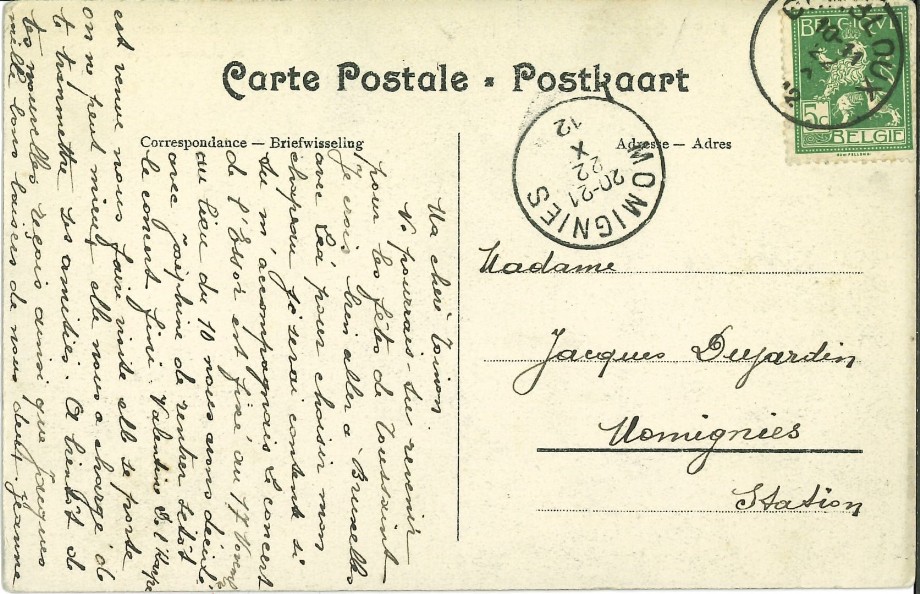 Carte Postale - Postkaart
Correspondance — Briefwisseling
Adresse — Adres
BELGIQUE
5c
BELGIE
10-11
MOMIGNIES
20-21
22
X
12
Ma chère Toinon
Ne pourrais-tu revenir
pour les fêtes de Toussaint
je crois bien aller à Bruxelles
avec Léa pour choisir mon
chapeau je serai contente si
tu m'accompagnais Le concert
de l'Essor est fixé au 17 Novemb
au lieu du 10 nous avons décidé
avec Joséphine de rentrer sitôt
le concert fini. Valentine
est venue nous faire visite elle se porte
on ne peut mieux elle nous a chargé de
te transmettre ses amitiés. A bientôt de
tes nouvelles reçois ainsi que Jacques
mille bons baisers de nous deux Jeanne
Madame
Jacques Dujardin
Momignies
Station